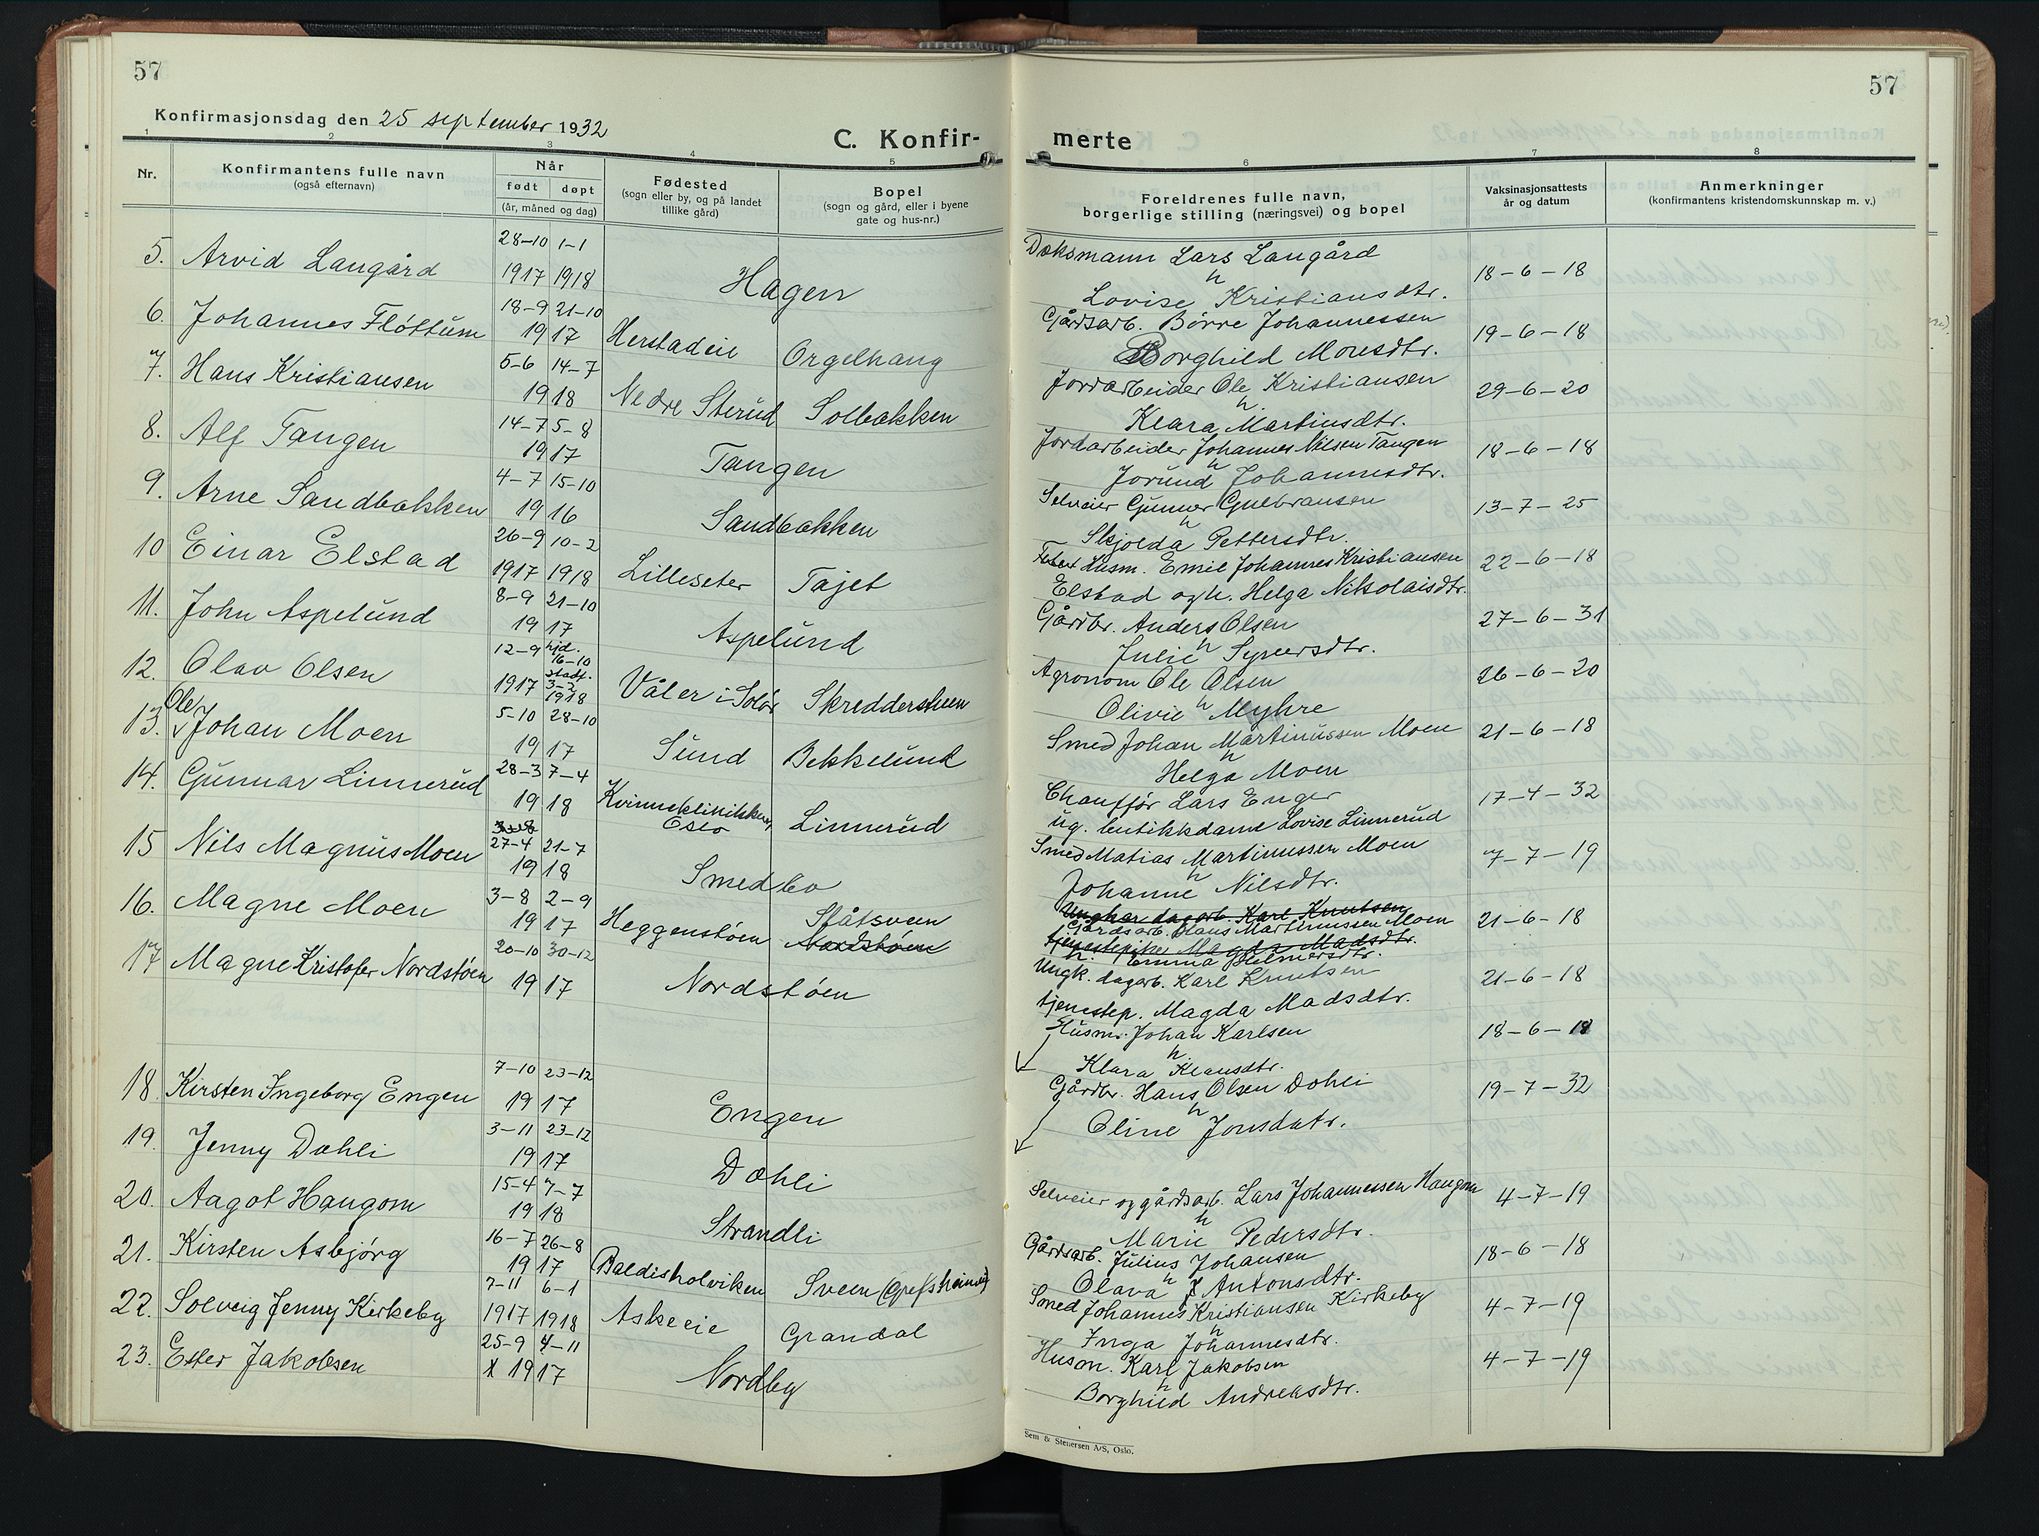 57
Konfirmasjonsdag den 25 september 1932
C. Konfir-
1 2 3 4 5
Nr.
Konfirmantens fulle navn
(også efternavn)
Når
født døpt
(år, måned og dag)
Fødested
(sogn eller by, og på landet
tillike gård)
Bopel
(sogn og gård, eller i byene
gate og hus-nr.)
5. Arvid Langård 28-10 1917 1-1 1918 Hagen
6. Johannes Fløttum 18-9 21-10 1917 Herstadeie Orgelhaug
7. Hans Kristiansen 5-6 14-7 1918 Nedre Sterud Solbakken
8. Alf Tangen 14-7 5-8 1917 Tangen
9. Arne Sandbakken 4-7 15-10 1916 Sandbakken
10 Einar Elstad 26-9 1917 10-2 1918 Lilleseter Tajet
11. John Aspelund 8-9 21-10 1917 Aspelund
12. Olav Olsen 12-9 1917 hjd. 16-10 stadf. 3-2 1918 Våler i Solør Skreddersveen
13. Ole Johan Moen 5-10 28-10 1917 Sund Bekkelund
14. Gunnar Linnerud 28-3 7-4 1918 Kvinneklinikken, Oslo Linnerud
15 Nils Magnus Moen 27-4 21-7 1918 Smedbo
16. Magne Moen 3-8 2-9 1917 Heggenstøen Slåtsveen
Nordstøen
17 Magne Kristofer Nordstøen 20-10 30-12 1917 Nordstøen
18. Kirsten Ingeborg Engen 7-10 23-12 1917 Engen
19. Jenny Dæhli 3-11 23-12 1917 Dæhli
20. Aagot Haugom 15-4 7-7 1918 Strandli
21. Kirsten Asbjørg 16-7 26-8 1917 Baldisholviken Sveen (Grefsheimvi)
22. Solveig Jenny Kirkeby 7-11 1917 6-1 1918 Askeeie Grandal
23. Ester Jakobsen 25-9 4-11 x 1917 Nordby
57
merte
6 7 8
Foreldrenes fulle navn,
borgerlige stilling (næringsvei) og bopel
Vaksinasjonsattests
år og datum
Anmerkninger
(konfirmantens kristendomskunnskap m. v.)
Dæksmann Lars Langård
h
Lovise Kristiansdtr. 18-6-18
Gårdsarb. Børre Johannessen
Borghild Monsdtr. 19-6-18
Jordarbeider Ole Kristiansen
h.
Klara Martinsdtr. 29-6-20
Jordarbeider Johannes Nilsen Tangen
h
Jorund Johannesdtr. 18-6-18
Selveier Gunner Gulbransen
h
Skjolda Pettersdtr. 13-7-25
Husm. Emil Johannes Kristiansen
Elstad og h. Helga Nikolaisdtr. 22-6-18
Gårdbr. Anders Olsen
h
Julie Syversdtr. 27-6-31
Agronom Ole Olsen
h
Olivie Myhre 26-6-20
Smed Johan Martinussen Moen
h
Helga Moen 21-6-18
Chauffør Lars Enger
ug. butikkdame Lovise Linnerud 17-4-32
Smed Matias Martinussen Moen
h
Johanne Nilsdtr. 7-7-19
Ungkar dagarb. Karl Knutsen
Gårdsarb. Hans Martinussen Moen 21-6-18
tjenestepike Magda Madsdtr.
h. Emma Hilmersdtr.
Ungk. dagarb. Karl Knutsen
tjenestep. Magda Madsdtr. 21-6-18
Husm. Johan Karlsen
h.
Klara Klausdtr. 18-6-18
Gårdbr. Hans Olsen Dohli
h
Oline Jonsdatr. 19-7-32
Selveier og gårdsarb. Lars Johannessen Haugom
h
Marie Pedersdtr. 4-7-19
Gårdsarb. Julius Johansen
h
Olava J Antonsdtr. 18-6-18
Smed Johannes Kristiansen Kirkeby
h
Inga Johannesdtr. 4-7-19
Husm. Karl Jakobsen
h
Borghild Andreasdtr. 4-7-19
Sem & Stenersen A/S, Oslo.